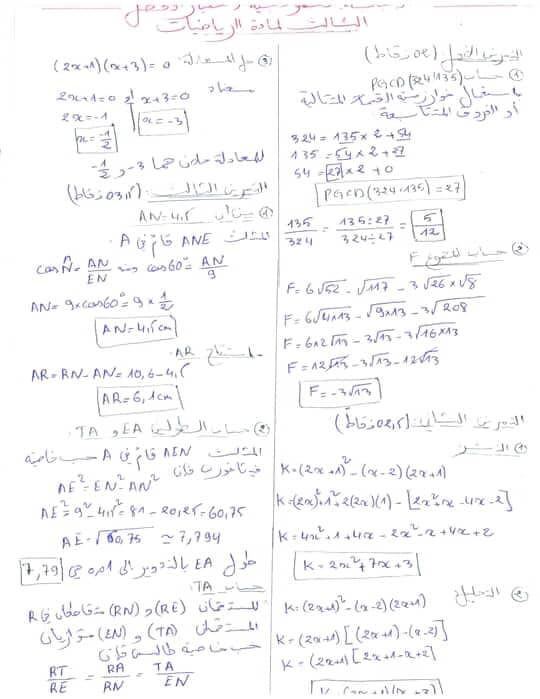 الثالث لمادة الرياضيات
التمرين الأول (02 نقاط)
① حساب PGCD(324;135)
باستعمال خوارزمية القسمة المتتالية
أو الفروق المتتابعة:
324 = 135 × 2 + 54
135 = 54 × 2 + 27
54 = 27 × 2 + 0
PGCD(324;135) = 27
135/324 = 135÷27/324÷27 = 5/12
② حساب المجموع F
F = 6√52 - √117 - 3√26 × √8
F = 6√4×13 - √9×13 - 3√208
F = 6×2√13 - 3√13 - 3√16×13
F = 12√13 - 3√13 - 12√13
F = -3√13
التمرين الثاني: (02,5 نقاط)
① النشر
K = (2x+1)² - (x-2)(2x+1)
K = (2x)²+1²+2(2x)(1) - [2x²+x-4x-2]
K = 4x²+1+4x-2x²-x+4x+2
K = 2x²+7x+3
② التحليل
K = (2x+1)² - (x-2)(2x+1)
K = (2x+1)[(2x+1)-(x-2)]
K = (2x+1)[2x+1-x+2]
K = (2x+1)(x+3)
③ حل المعادلة: (2x+1)(x+3) = 0
معناه
2x+1=0 أو x+3=0
2x=-1
x=-3
x=-1/2
للمعادلة حلان هما -3 و -1/2
التمرين الثالث: (03,5 نقاط)
① بين أن AN=4,5
المثلث ANE قائم في A
cos N̂ = AN/EN ومنه cos60° = AN/9
AN = 9×cos60° = 9 × 1/2
AN = 4,5cm
استنتاج AR
AR = RN - AN = 10,6 - 4,5
AR = 6,1cm
② حساب الطولين EA و TA:
المثلث AEN قائم في A حسب خاصية
فيثاغورث فإن
AE² = EN² - AN²
AE² = 9² - 4,5² = 81 - 20,25 = 60,75
AE = √60,75 ≃ 7,794
طول EA بالتدوير إلى 0,01 هي 7,79
حساب TA:
المستقيمان (RE) و (RN) متقاطعان في R
المستقيمان (TA) و (EN) متوازيان
حسب خاصية طالس فإن
RT/RE = RA/RN = TA/EN